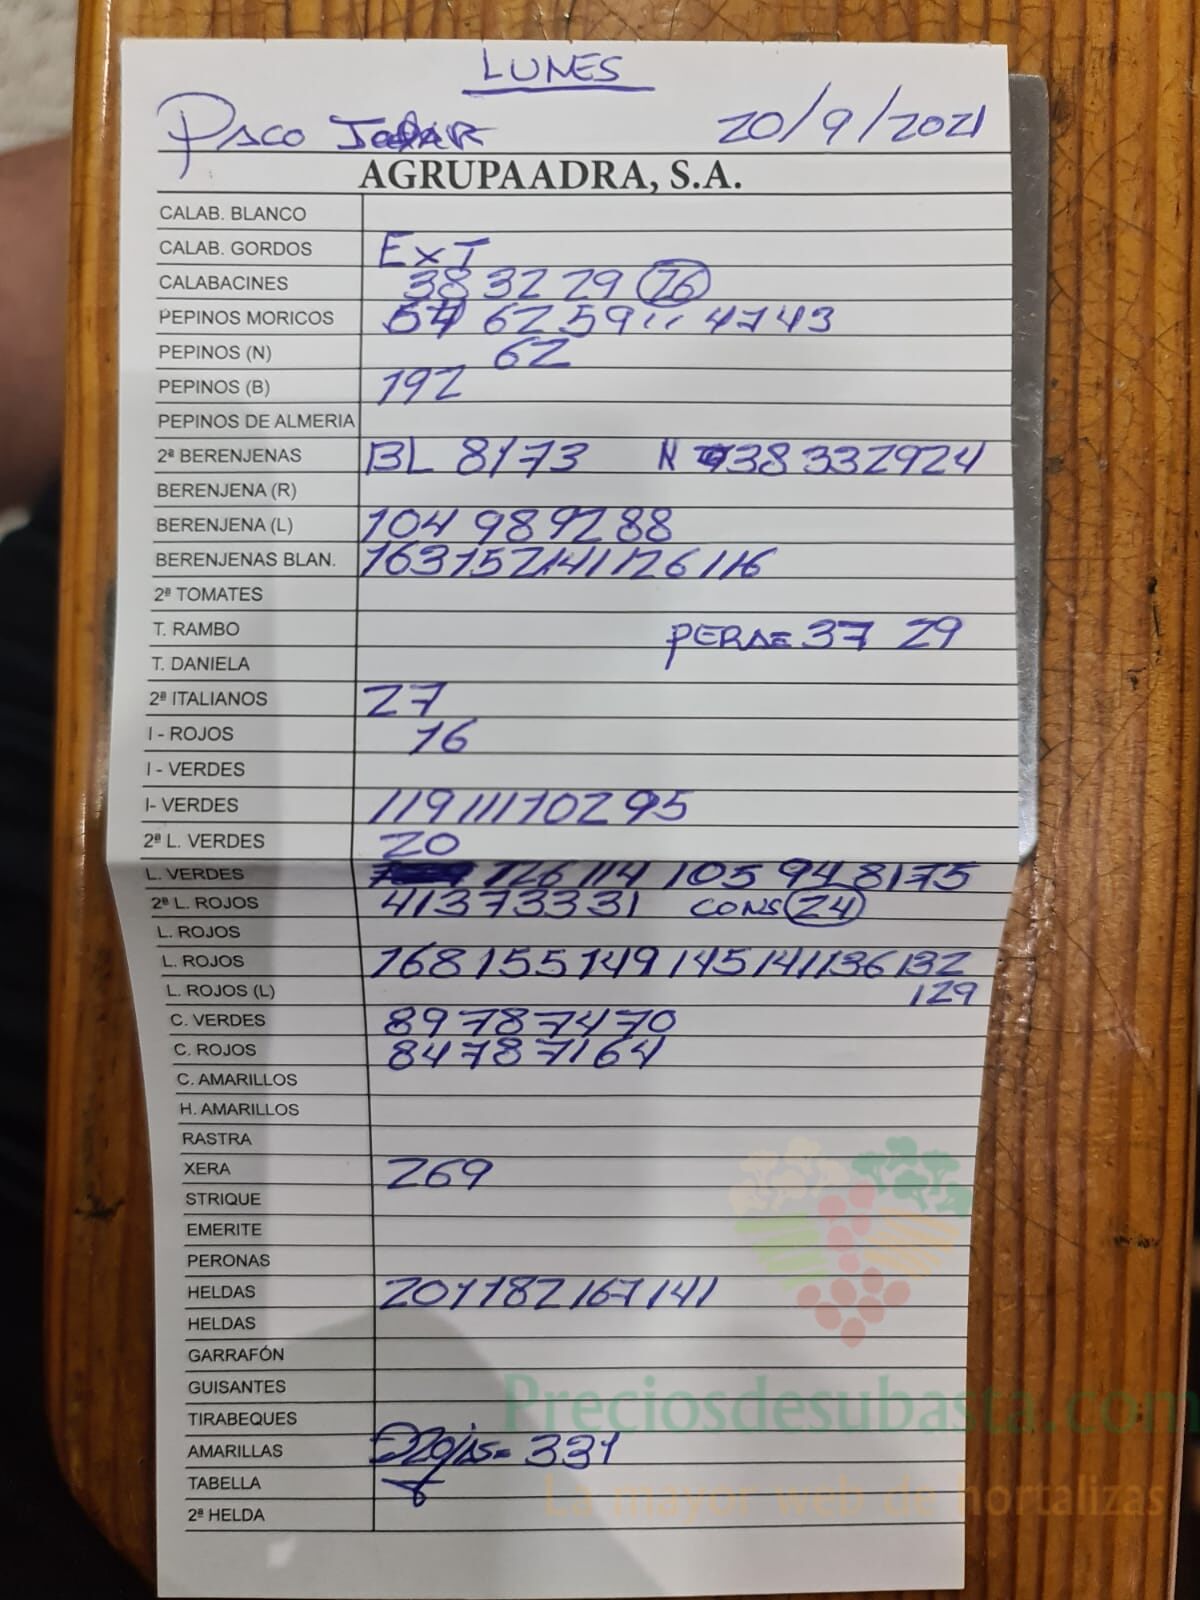 LUNES
Paco Jodar 20/9/2021
AGRUPAADRA, S.A.
CALAB. BLANCO
CALAB. GORDOS EXT
CALABACINES 38 32 29 26
PEPINOS MORICOS 62 59 11 47 43
PEPINOS (N) 62
PEPINOS (B) 192
PEPINOS DE ALMERIA
2ª BERENJENAS BL 81 73 N 38 33 29 24
BERENJENA (R)
BERENJENA (L) 104 98 92 88
BERENJENAS BLAN. 163 152 141 126 116
2ª TOMATES
T. RAMBO PERA= 37 29
T. DANIELA
2ª ITALIANOS 27
I - ROJOS 16
I - VERDES
I- VERDES 119 111 102 95
2ª L. VERDES 20
L. VERDES 126 114 105 94 81 75
2ª L. ROJOS 41 37 33 31 CONS 24
L. ROJOS
L. ROJOS 168 155 149 145 141 136 132
L. ROJOS (L) 129
C. VERDES 89 78 74 70
C. ROJOS 84 78 71 64
C. AMARILLOS
H. AMARILLOS
RASTRA
XERA 269
STRIQUE
EMERITE
PERONAS
HELDAS 201 182 167 141
HELDAS
GARRAFÓN
GUISANTES
Preciosdesubasta.com
TIRABEQUES
AMARILLAS = 331
TABELLA
La mayor web de hortalizas
2ª HELDA